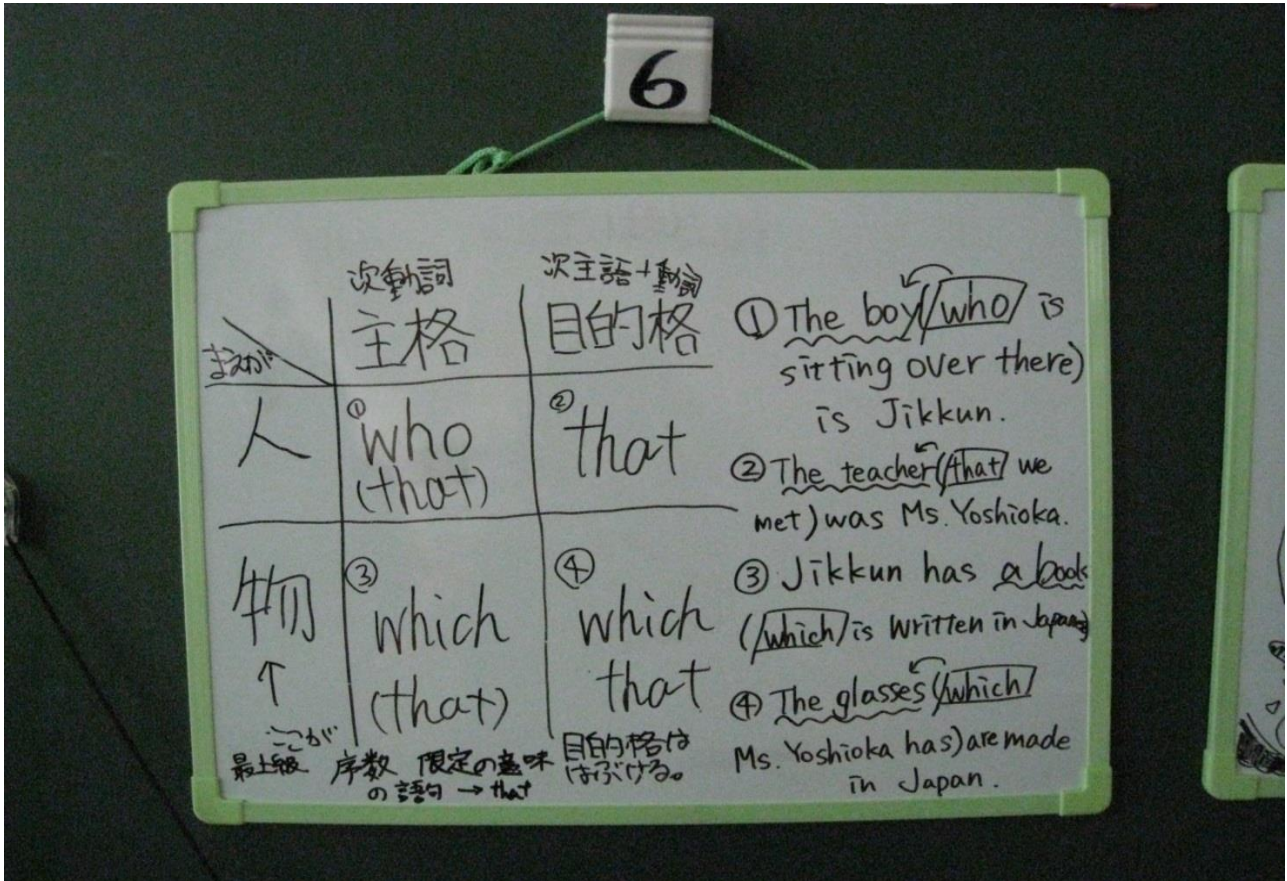 6
次動詞 次主語+動詞
まえが 主格 目的格
人 ①who ②that
(that)
物 ③which ④which
(that) that
↑
ここが
最上級 序数 限定の意味
の語句 → that
目的格は
はぶける。
①The boy(who is
sitting over there)
is Jikkun.
②The teacher(that we
met)was Ms. Yoshioka.
③Jikkun has a book
(which is written in
④The glasses(which
Ms. Yoshioka has)are made
in Japan.